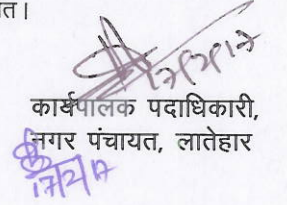 त।
17/2/17
कार्यपालक पदाधिकारी,
नगर पंचायत, लातेहार
17/2/17